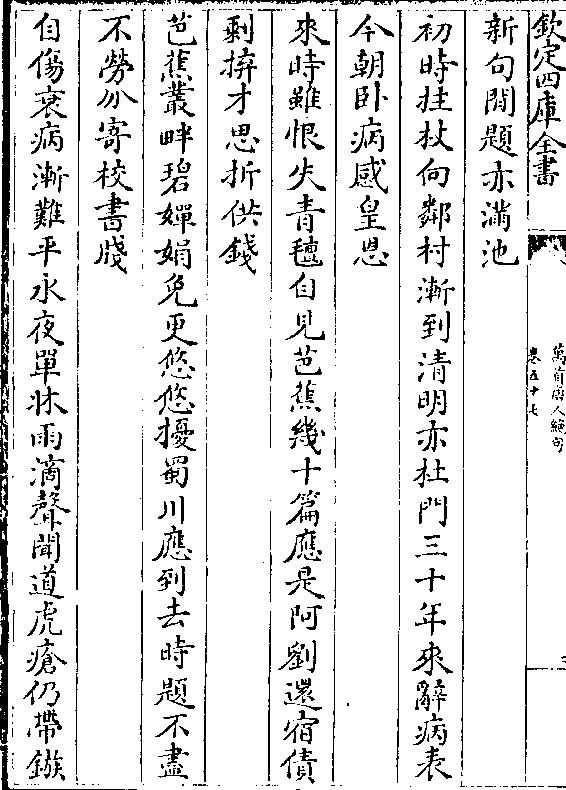 欽定四庫全書
萬首唐人絶句
卷五十七
新句閒題亦滿池
初時拄杖向鄰村漸到清明亦杜門三十年來辭病表
今朝卧病感皇恩
來時雖恨失青氊自見芭蕉幾十篇應是阿劉還宿債
剩拚才思折供錢
芭蕉叢畔碧嬋娟免更悠悠擾蜀川應到去時題不盡
不勞分寄校書牋
自傷衰病漸難平永夜單牀雨滴聲聞道虎瘡仍帶鏃